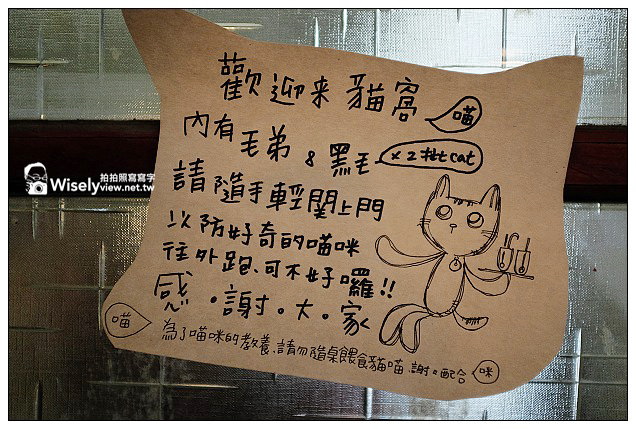 歡迎来貓窩
喵
內有毛弟 & 黑毛
x 2 批 cat
請隨手輕關上門
以防好奇的喵咪
往外跑、可不好囉!!
感。謝。大。家
喵
為了喵咪的教養、請勿隨桌餵食貓喵.謝。配合
咪
拍拍照寫寫字
Wiselyview.net.tw